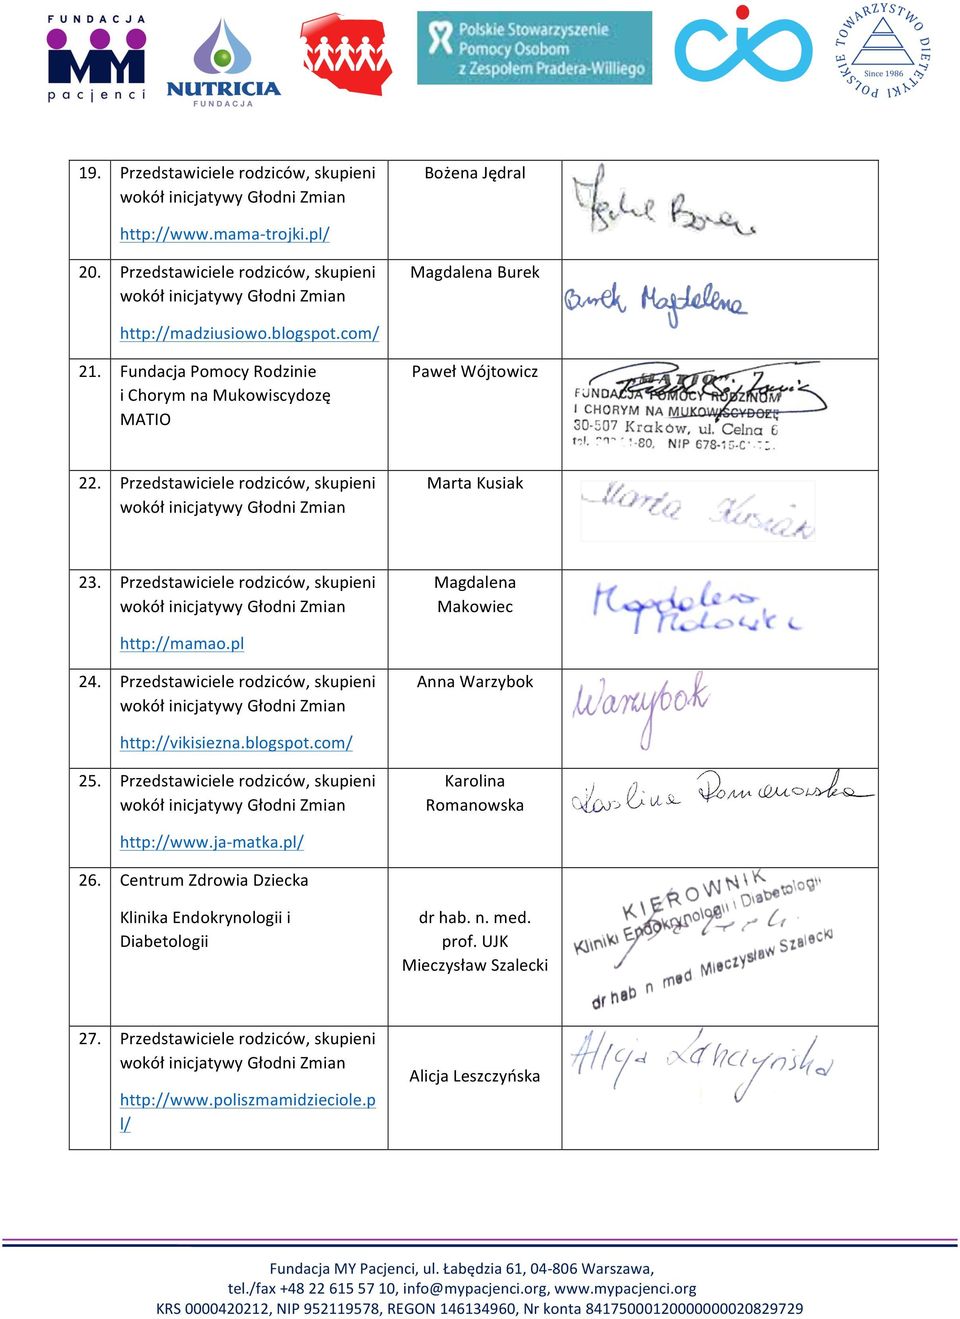 FUNDACJA
MY
pacjenci
NUTRICIA
FUNDACJA
Polskie Stowarzyszenie
Pomocy Osobom
z Zespołem Pradera-Williego
POLSKIE TOWARZYSTWO DIETETYKI
Since 1986
19. Przedstawiciele rodziców, skupieni
wokół inicjatywy Głodni Zmian
http://www.mama-trojki.pl/
Bożena Jędral
20. Przedstawiciele rodziców, skupieni
wokół inicjatywy Głodni Zmian
http://madziusiowo.blogspot.com/
Magdalena Burek
Burek Magdalena
21. Fundacja Pomocy Rodzinie
i Chorym na Mukowiscydozę
MATIO
Paweł Wójtowicz
"MATIO"
FUNDACJA POMOCY RODZINOM
I CHORYM NA MUKOWISCYDOZĘ
30-507 Kraków, ul. Celna 6
tel. NIP
22. Przedstawiciele rodziców, skupieni
wokół inicjatywy Głodni Zmian
Marta Kusiak
Marta Kusiak
23. Przedstawiciele rodziców, skupieni
wokół inicjatywy Głodni Zmian
http://mamao.pl
Magdalena
Makowiec
Magdalena
24. Przedstawiciele rodziców, skupieni
wokół inicjatywy Głodni Zmian
http://vikisiezna.blogspot.com/
Anna Warzybok
Warzybok
25. Przedstawiciele rodziców, skupieni
wokół inicjatywy Głodni Zmian
http://www.ja-matka.pl/
Karolina
Romanowska
Karolina Romanowska
26. Centrum Zdrowia Dziecka
Klinika Endokrynologii i
Diabetologii
dr hab. n. med.
prof. UJK
Mieczysław Szalecki
KIEROWNIK
Kliniki Endokrynologii i Diabetologii
dr hab n med Mieczysław Szalecki
27. Przedstawiciele rodziców, skupieni
wokół inicjatywy Głodni Zmian
http://www.poliszmamidzieciole.p
l/
Alicja Leszczyńska
Alicja
Fundacja MY Pacjenci, ul. Łabędzia 61, 04-806 Warszawa,
tel./fax +48 22 615 57 10, info@mypacjenci.org, www.mypacjenci.org
KRS 0000420212, NIP 952119578, REGON 146134960, Nr konta 84175000120000000020829729